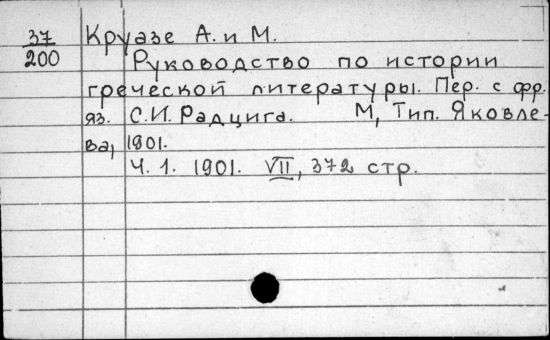 37 Круазе А. и М.
200 Руководство по истории
греческой литературы. Пер. с фр.
яз. С.И. Радцига. М, Тип. Яковле-
ва, 1901.
Ч. 1. 1901. VII, 372 стр.